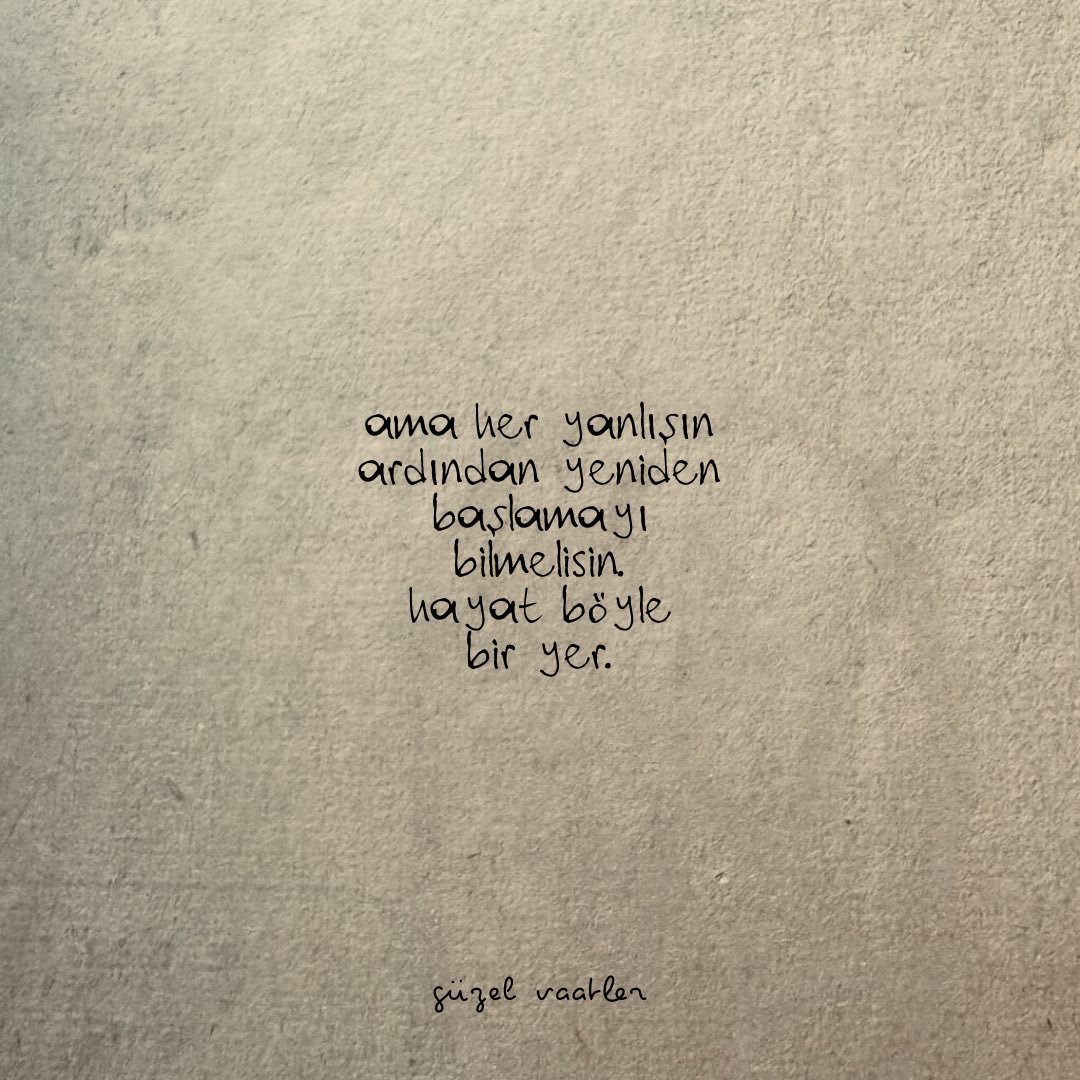 ama her yanlışın
ardından yeniden
başlamayı
bilmelisin.
hayat böyle
bir yer.
güzel vaatler